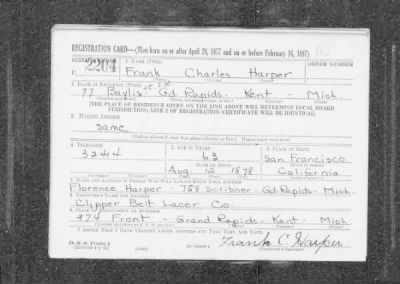 REGISTRATION CARD—(Men born on or after April 28, 1877 and on or before February 16, 1897)
SERIAL NUMBER 1. NAME (Print) ORDER NUMBER
2204 Frank Charles Harper
2. PLACE OF RESIDENCE (Print)
77 Baylis Gd Rapids - Kent - Mich
[THE PLACE OF RESIDENCE GIVEN ON THE LINE ABOVE WILL DETERMINE LOCAL BOARD
JURISDICTION; LINE 2 OF REGISTRATION CERTIFICATE WILL BE IDENTICAL]
3. MAILING ADDRESS
same
4. TELEPHONE 5. AGE IN YEARS 6. PLACE OF BIRTH
3244 63 San Francisco
DATE OF BIRTH
Aug - 12 1878 California
7. NAME AND ADDRESS OF PERSON WHO WILL ALWAYS KNOW YOUR ADDRESS
Florence Harper - 758 Scribner - Gd. Rapids - Mich.
8. EMPLOYER'S NAME AND ADDRESS
Clipper Belt Lacer Co.
974 Front - Grand Rapids - Kent - Mich
I AFFIRM THAT I HAVE VERIFIED ABOVE ANSWERS AND THAT THEY ARE TRUE.
D. S. S. Form 1
Frank C. Harper